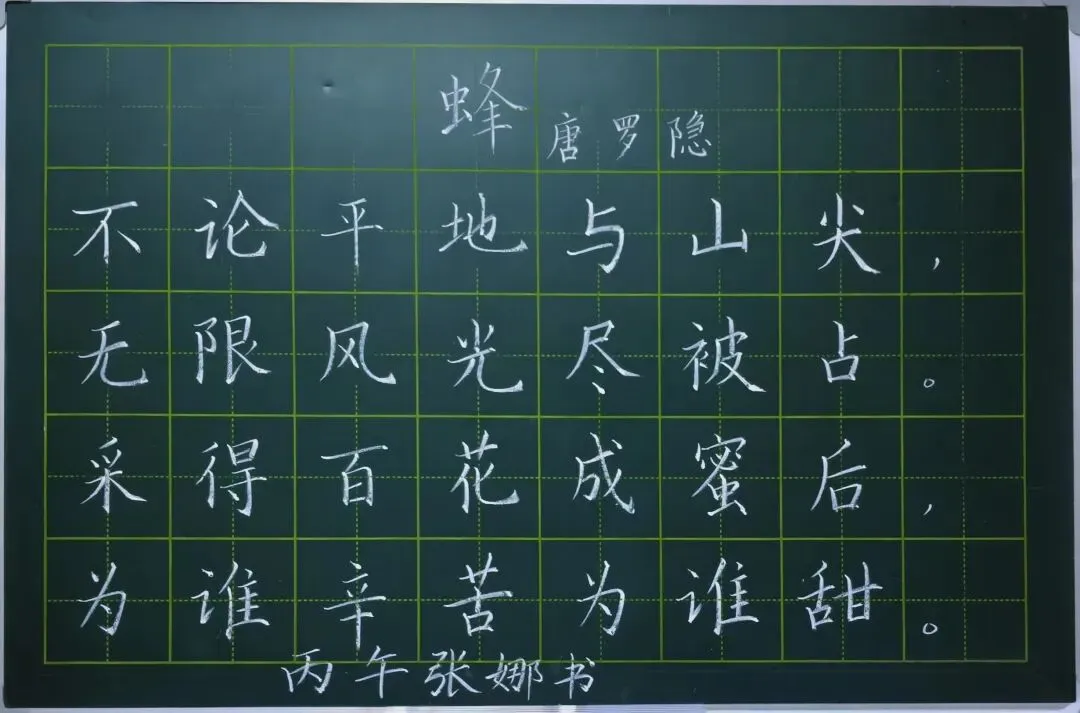 蜂
唐罗隐
不论平地与山尖，
无限风光尽被占。
采得百花成蜜后，
为谁辛苦为谁甜。
丙午张娜书